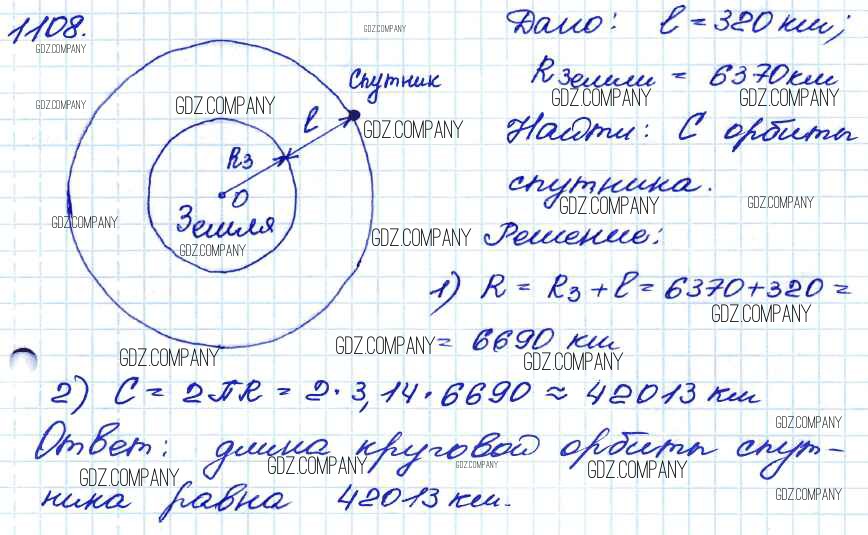 1108.
GDZ.COMPANY
GDZ.COMPANY
Дано: l = 320 км;
Спутник
Rземли = 6370 км
GDZ.COMPANY
GDZ.COMPANY
GDZ.COMPANY
GDZ.COMPANY
l
GDZ.COMPANY
Найти: С орбиты
Rз
О
спутника.
GDZ.COMPANY
GDZ.COMPANY
Земля
GDZ.COMPANY
GDZ.COMPANY
GDZ.COMPANY
Решение:
1) R = Rз + l = 6370 + 320 =
GDZ.COMPANY
= 6690 км
GDZ.COMPANY
GDZ.COMPANY
GDZ.COMPANY
2) C = 2πR = 2 · 3,14 · 6690 ≈ 42013 км
GDZ.COMPANY
Ответ: длина круговой орбиты спут-
GDZ.COMPANY
GDZ.COMPANY
GDZ.COMPANY
GDZ.COMPANY
GDZ.COMPANY
ника равна 42013 км.
GDZ.COMPANY